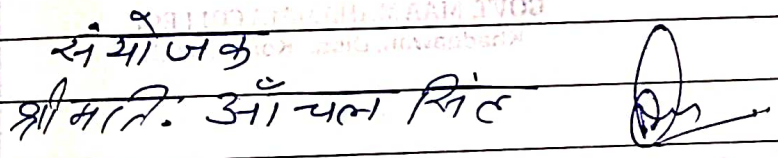 संयोजक
श्रीमति. आँचल सिंह